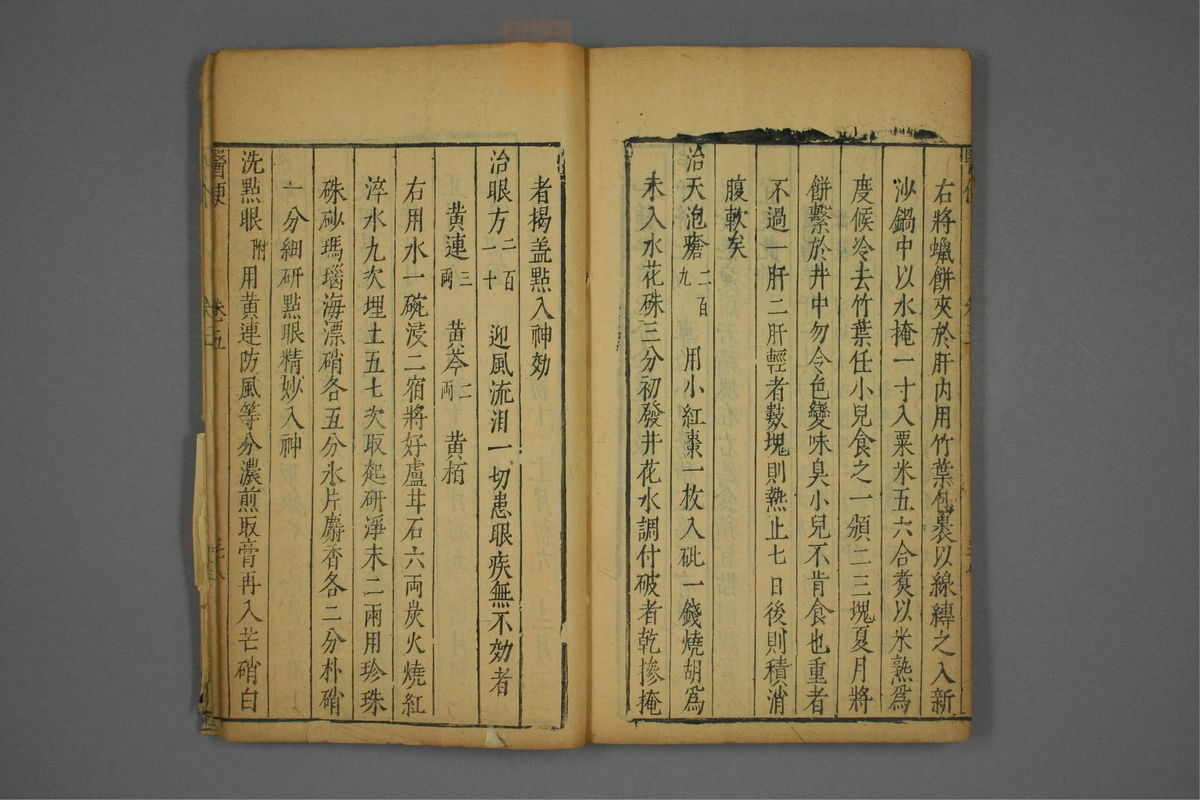 右將蠟餅夾於肝內用竹葉包裹以線縳之入新
沙鍋中以水掩一寸入粟米五六合煑以米熟爲
度候冷去竹葉任小兒食之一頻二三塊夏月將
餅繫於井中勿令色變味臭小兒不肯食也重者
不過一肝二肝輕者數塊則熱止七日後則積消
腹軟矣
治天泡瘡二百九 用小紅棗一枚入砒一錢燒胡爲
末入水花硃三分初發井花水調付破者乾摻掩
者揭盖點入神効
治眼方二百一十 迎風流泪一切患眼疾無不効者
黄連三兩 黄芩二兩 黄栢
右用水一碗浸二宿將好盧甘石六両炭火燒紅
淬水九次埋土五七次取起研淨末二兩用珍珠
硃砂瑪瑙海漂硝各五分氷片麝香各二分朴硝
一分細研點眼精妙入神
洗點眼附 用黄連防風等分濃煎取膏再入芒硝白
醫便 卷五